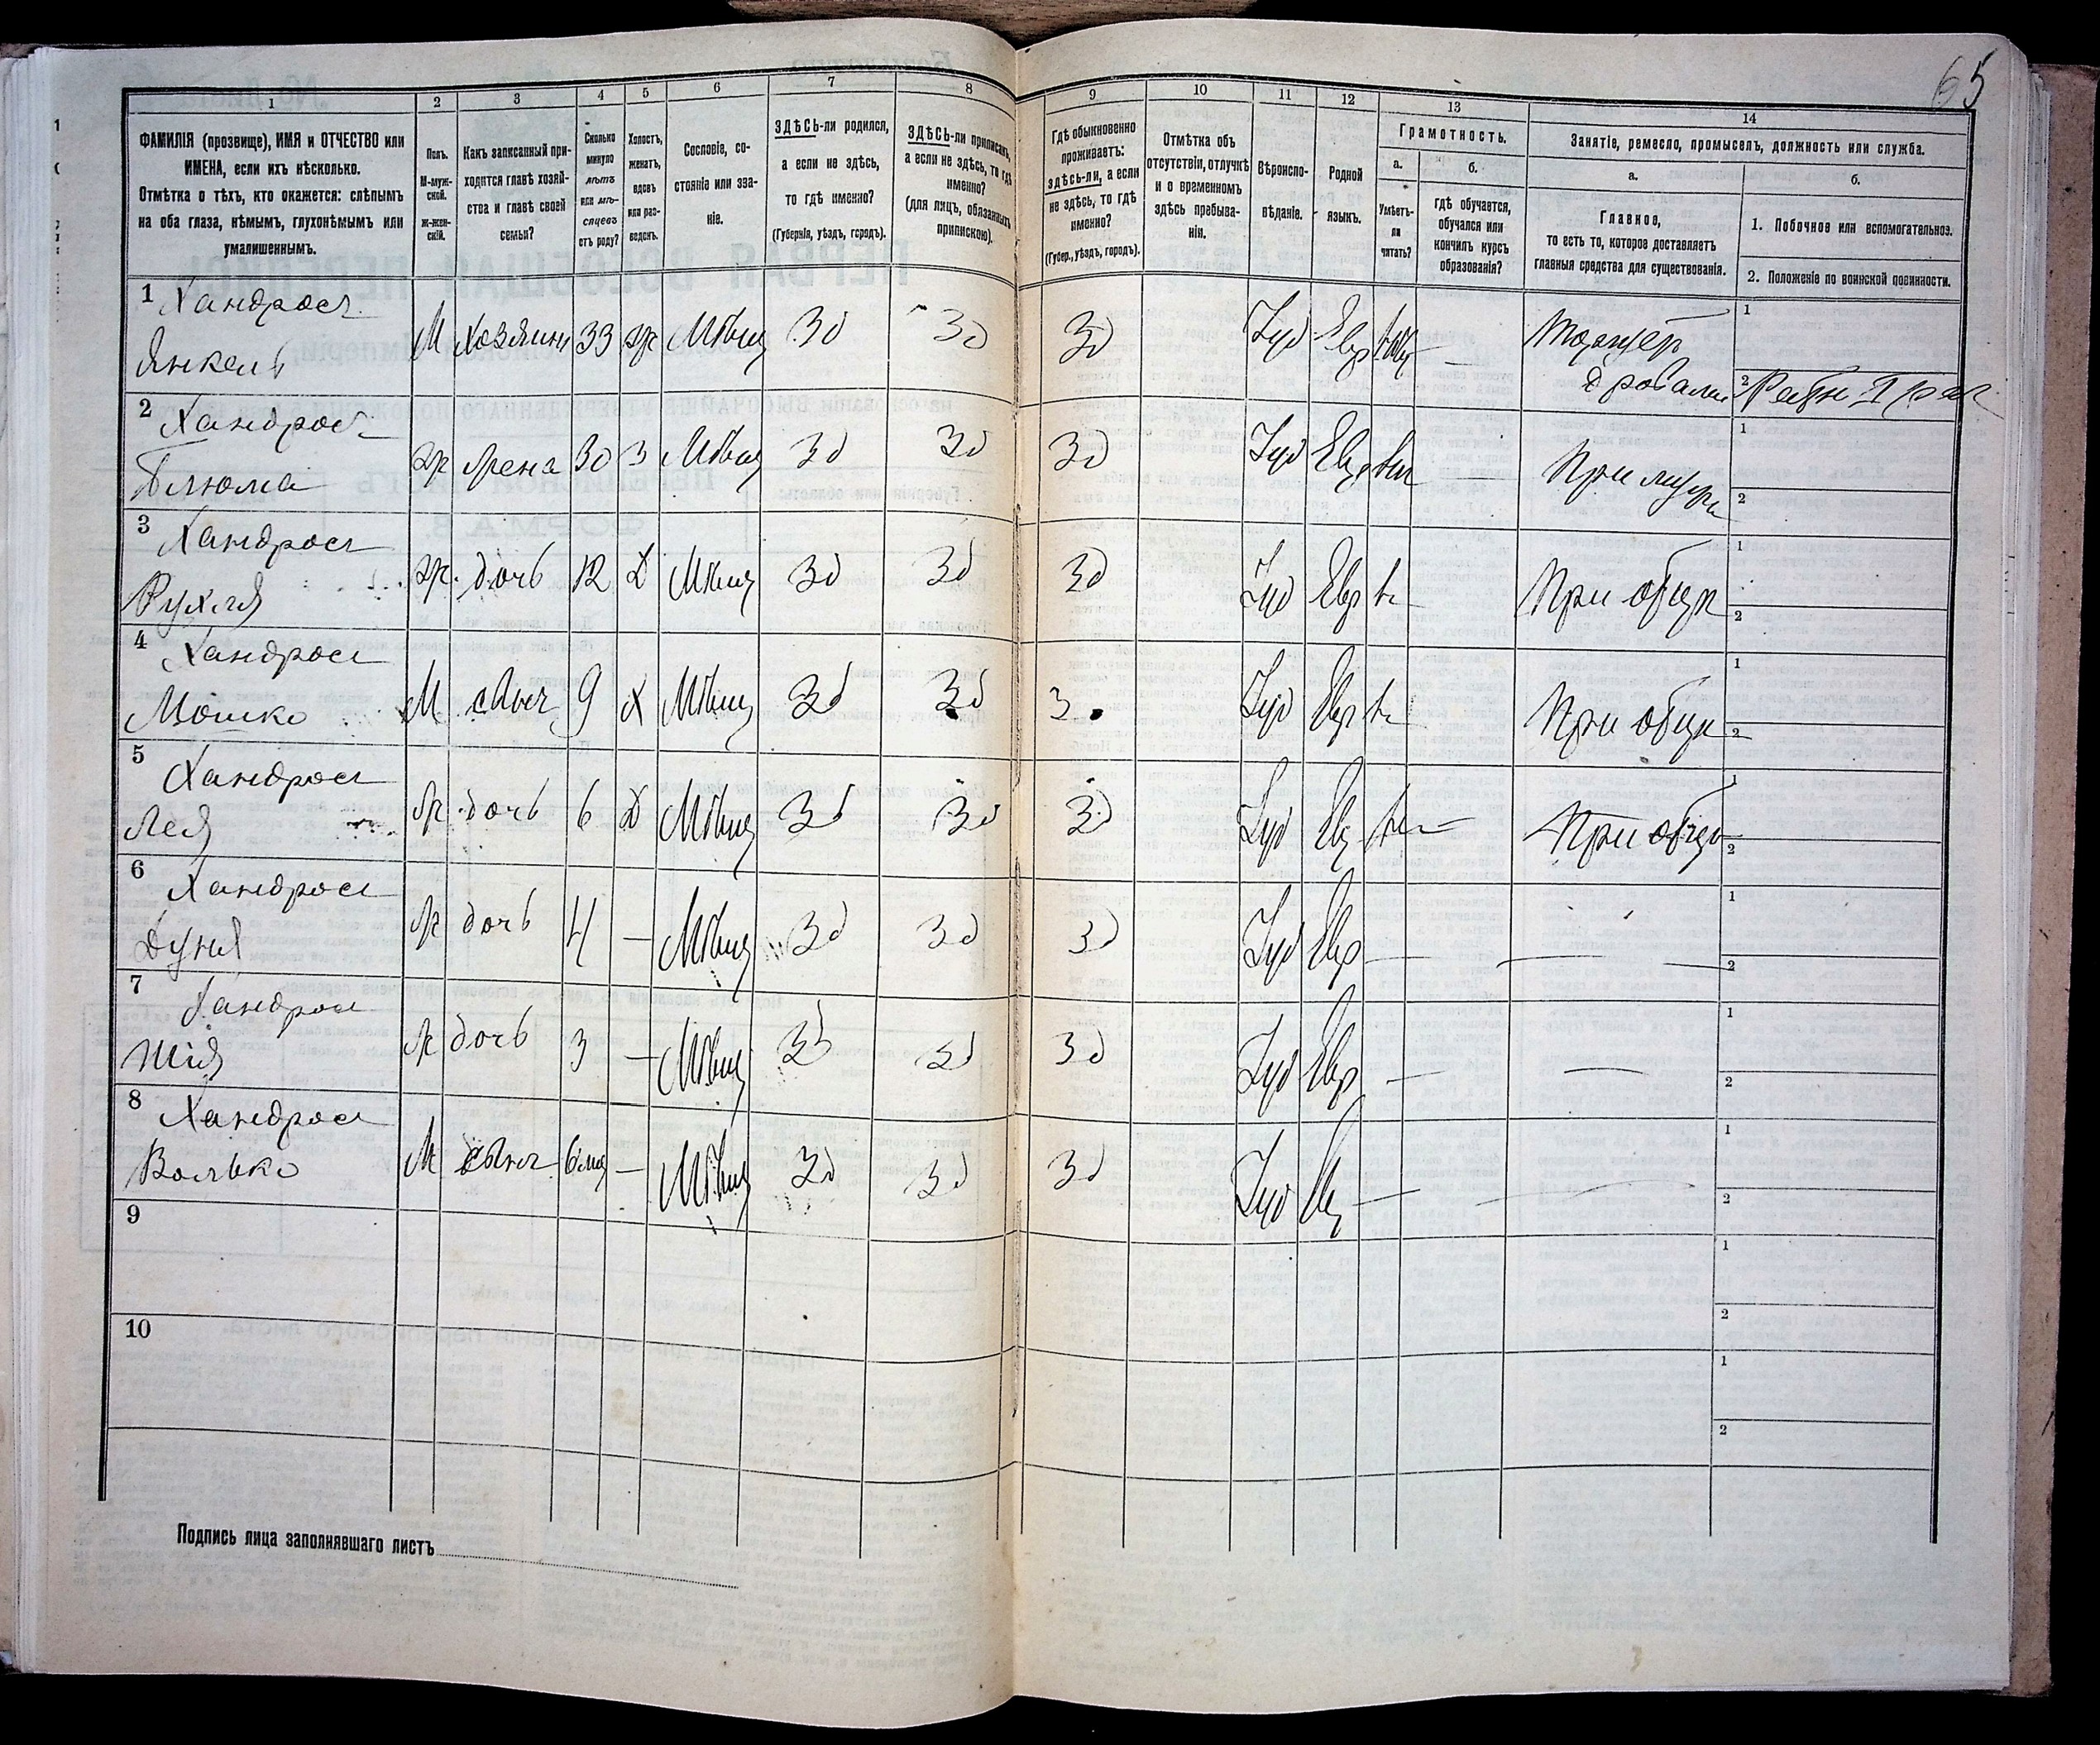 65
1 2 3 4 5 6 7 8 9 10 11 12 13 14
ФАМИЛІЯ (прозвище), ИМЯ и ОТЧЕСТВО или
ИМЕНА, если ихъ нѣсколько.
Отмѣтка о тѣхъ, кто окажется: слѣпымъ
на оба глаза, нѣмымъ, глухонѣмымъ или
умалишеннымъ.
Полъ.
М-муж-
ской.
ж-жен-
скій.
Какъ записанный при-
ходится главѣ хозяй-
ства и главѣ своей
семьи?
Сколько
минуло
лѣтъ
или мѣ-
сяцевъ
отъ роду?
Холостъ,
женатъ,
вдовъ
или раз-
веденъ.
Сословіе, со-
стояніе или зва-
ніе.
ЗДѢСЬ-ли родился,
а если не здѣсь,
то гдѣ именно?
(Губернія, уѣздъ, городъ).
ЗДѢСЬ-ли приписанъ,
а если не здѣсь, то гдѣ
именно?
(для лицъ, обязанныхъ
припискою).
Гдѣ обыкновенно
проживаетъ:
здѣсь-ли, а если
не здѣсь, то гдѣ
именно?
(Губер., уѣздъ, городъ).
Отмѣтка объ
отсутствіи, отлучкѣ
и о временномъ
здѣсь пребыва-
ніи.
Вѣроиспо-
вѣданіе.
Родной
языкъ.
Грамотность.
а.
Умѣетъ-
ли
читать?
б.
гдѣ обучается,
обучался или
кончилъ курсъ
образованія?
Занятіе, ремесло, промыселъ, должность или служба.
а.
Главное,
то есть то, которое доставляетъ
главныя средства для существованія.
б.
1. Побочное или вспомогательное.
2. Положеніе по воинской повинности.
1 Хандросъ
Янкель М хозяинъ 33 ж Мѣщ Зд Зд Зд Іуд Евр — Торгуетъ
дровами
1
2 Ратн 1 раз
2 Хандросъ
Блюма ж жена 30 З Мѣщ Зд Зд Зд Іуд Евр — При мужѣ
1
2
3 Хандросъ
Рухля ж дочь 12 Д Мѣщ Зд Зд Зд Іуд Евр При отцѣ
1
2
4 Хандросъ
Мошко М сынъ 9 Х Мѣщ Зд Зд З Іуд Евр При отцѣ
1
2
5 Хандросъ
Лея ж дочь 6 Д Мѣщ Зд Зд Зд Іуд Евр При отцѣ
1
2
6 Хандросъ
Дуня ж дочь 4 — Мѣщ Зд Зд Зд Іуд Евр — —
1
2
7 Хандрос
ж дочь 3 — Мѣщ Зд Зд Зд Іуд Евр — —
1
2
8 Хандросъ
Волько М сынъ 6 мѣ — Мѣщ Зд Зд Зд Іуд Ев — —
1
2
9
1
2
10
1
2
Подпись лица заполнявшаго листъ